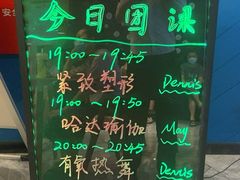 安全
今日团课
19:00～19:45
紧致塑形 Dennis
19:00～19:50
哈达瑜伽 May
20:00～20:45
有氧热舞 Dennis